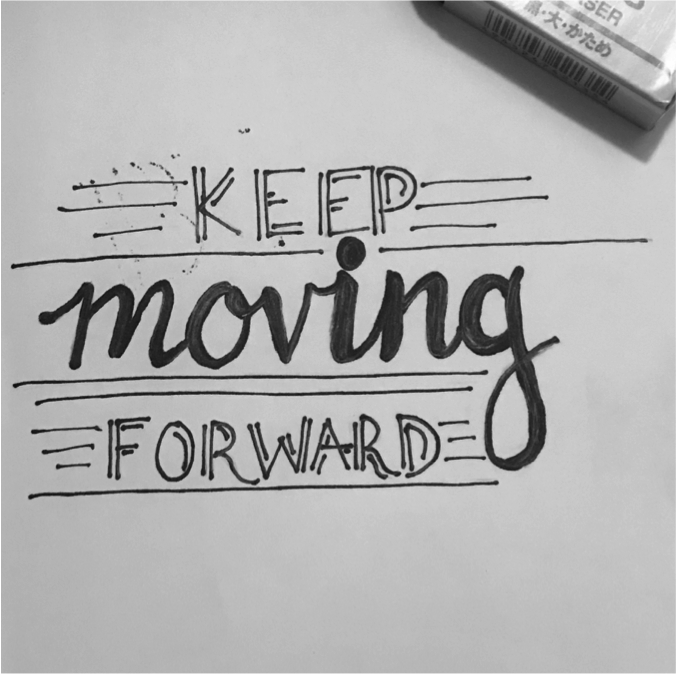 ASER
黒・大・かため
KEEP
moving
FORWARD